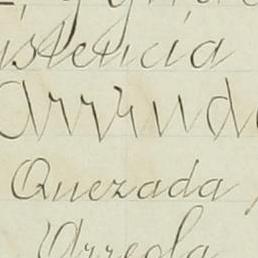 istencia
Arrud
Quezada,
Arreola